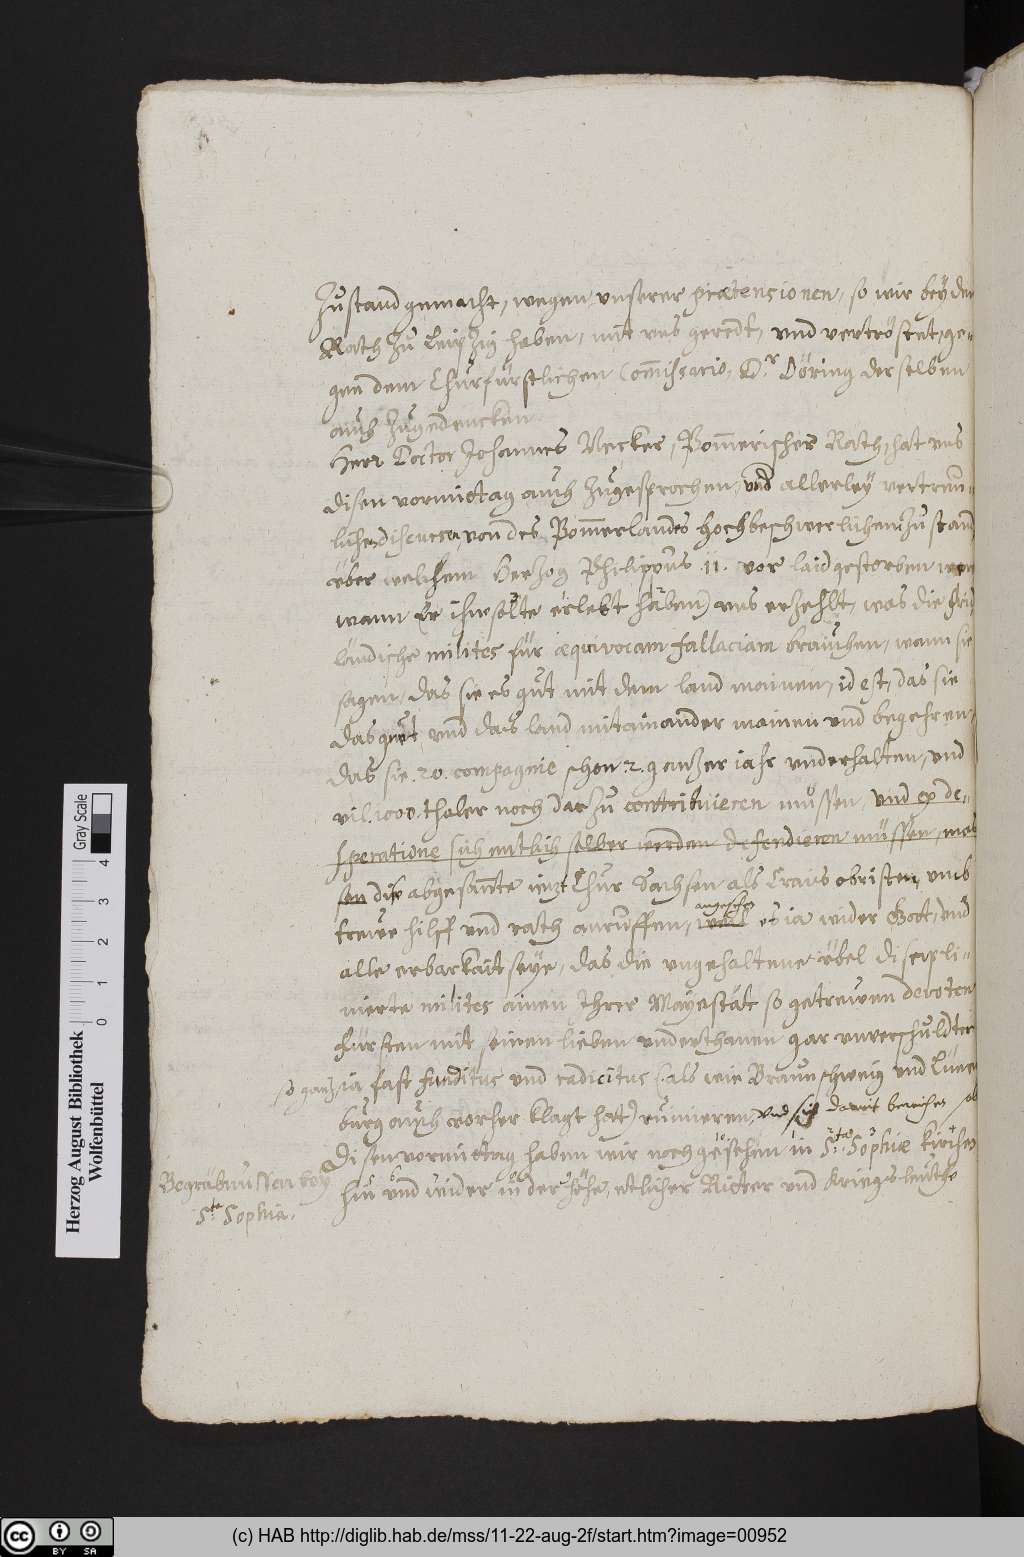 Zustand gemacht, wegen unserer prætensionen, so wir bey dem
Rath zu Leipzig haben, mit uns geredt, und vertröstet, ge-
gen dem Churfürstlichen Commissario, Dr Döring derselben
auch zugedencken.
Herr Doctor Johannes Becker, Pommerischer Rath, hat uns
disen vormittag auch zugesprochen, und allerley vertreu-
liche discursen, von des Pommerlandes hochbeschwerlichem Zustand
über welchem Herzog Philippus .II. vor laid gestorben
wann Er ihne solte erlebt haben) uns erzehlt, was die
ländische milites für æquivocam fallaciam brauchen, wann sie
sagen, das sie es gut mit dem land mainen, id est, das sie
das gut und das land mitainander mainen und begehren,
das sie .20. compagnie schon .2. ganzer iahr underhalten, und
vil .1000. thaler noch darzu contribuieren müssen, und ex de-
speratione sich entlich selber werden defendieren müssen,
sen die abgesante iezt Chur Sachsen als Crais obristen, umb
trewe hilff und rath anruffen, angesehen es ia wider Gott, und
alle erbarkait seye, das die ungehaltene übel discipli-
nierte milites ainen Ihrer Mayestät so getrewen devoten
Fürsten mit seinen lieben underthanen gar unverschuldter
so ganz, ia fast funditus und radicitus (als wie Braunschweig und Lüne-
burg auch vorher klagt hatt) ruinieren, und sich damit
Disen vormittag haben wir noch gesehen in Stæ Sophiæ Kirchen
Begräbnussen bey
Sta Sophia.
hin und wider in der höhe, etlicher Ritter und Kriegs leuthe
Herzog August Bibliothek
Wolfenbüttel
Gray Scale
0 1 2 3 4
cc BY SA
(c) HAB http://diglib.hab.de/mss/11-22-aug-2f/start.htm?image=00952